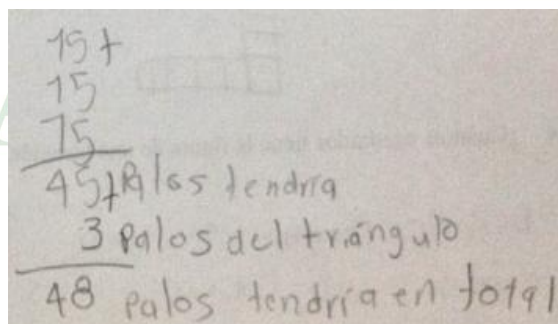 15+
15
15
45+Palos tendría
3 palos del triángulo
48 palos tendría en total